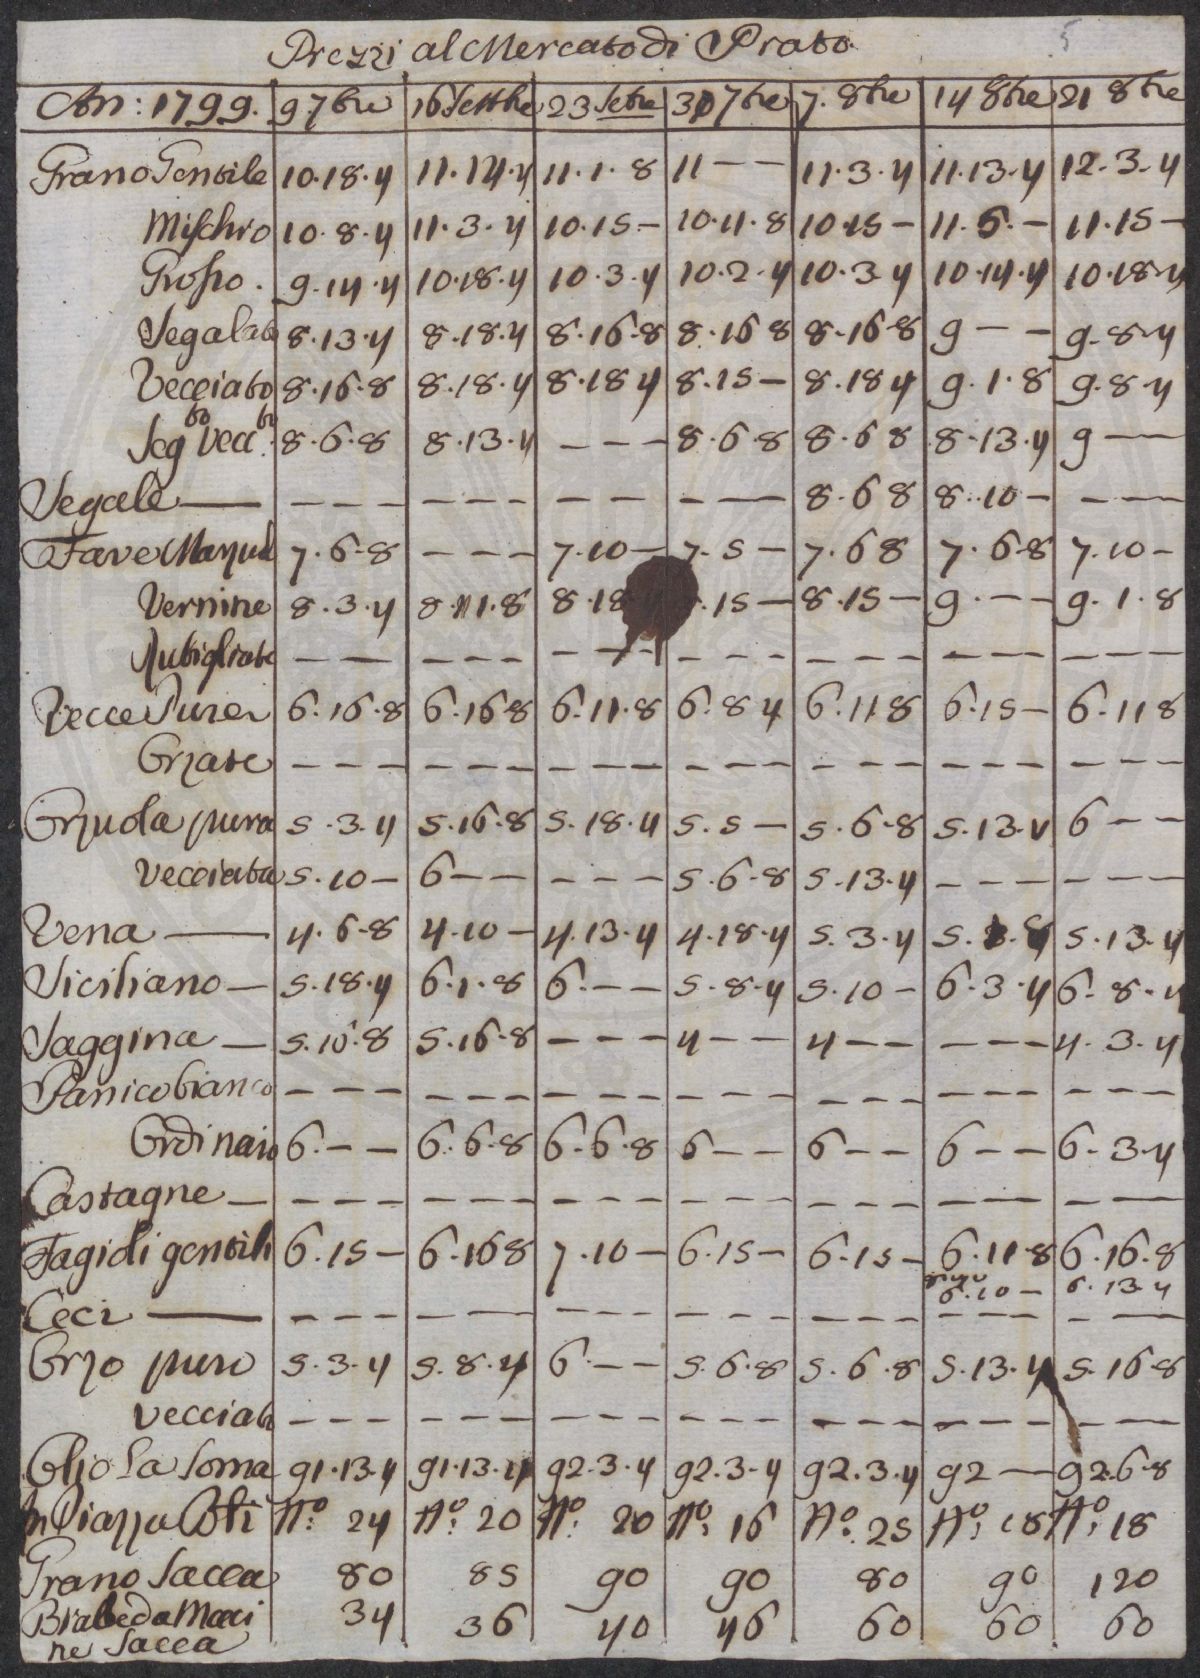 5
Prezzi al Mercato di Prato
An: 1799. 9 7bre 16 Settbe 23 Setre 30 7bre 7. 8bre 14 8bre 21 8bre
Grano Gentile 10.18.4 11.14.4 11.1.8 11 — — 11.3.4 11.13.4 12.3.4
Mischio 10.8.4 11.3.4 10.15 — 10.11.8 10.15 — 11.5. — 11.15 —
Grosso. 9.14.4 10.18.4 10.3.4 10.2.4 10.3.4 10.14.4 10.18.4
Segalato 8.13.4 8.18.4 8.16.8 8.16 8 8.16.8 9 — — 9.8.4
Vecciato 8.16.8 8.18.4 8.18 4 8.15 — 8.18 4 9.1.8 9.8.4
Segto Vecto: 8.6.8 8.13.4 — — — 8.6.8 8.6 8 8.13.4 9 — —
Segale — — — — — — — — — — — — 8.6 8 8.10 — — — —
Fave Mazzuol 7.6.8 — — — 7.10 — 7.5 — 7.6 8 7.6.8 7.10 —
Vernine 8.3.4 8.11.8 8.18 .15 — 8.15 — 9. — — 9.1.8
Rubigliate — — — — — — — — — — — — — — — — — — — —
Vecce Pure 6.16.8 6.16 8 6.11.8 6.8 4 6.11 8 6.15 — 6.11 8
Orzate — — — — — — — — — — — — — — — — — — — — —
Orzuola pura 5.3.4 5.16.8 5.18.4 5.5 — 5.6.8 5.13.4 6 — —
Vecciata 5.10 — 6 — — — — — 5.6.8 5.13.4 — — — — — —
Vena — 4.6.8 4.10 — 4.13.4 4.18.4 5.3.4 5. 5.13.4
Siciliano — 5.18.4 6.1.8 6. — — 5.8.4 5.10 — 6.3.4 6.8.4
Saggina — 5.16.8 5.16.8 — — — 4 — — 4 — — — — — 4.3.4
Panico bianco — — — — — — — — — — — — — — — — — — — — —
Ordinaio 6. — — 6.6.8 6.6.8 6 — — 6 — — 6 — — 6.3.4
Castagne — — — — — — — — — — — — — — — — — — — —
Fagioli gentili 6.15 — 6.16 8 7.10 — 6.15 — 6.15 — 6.11.8 6.16.8
6.10 — 6.13.4
Ceci — — — — — — — — — — — — — — — — — — — — —
Orzo puro 5.3.4 5.8.4 6 — — 5.6.8 5.6.8 5.13.4 5.16.8
vecciato — — — — — — — — — — — — — — — — — — — —
Olio La Soma 91.13.4 91.13.4 92.3.4 92.3.4 92.3.4 92 — 92.6.8
In Piazza Olio No: 24 No: 20 No: 20 No: 16 No: 25 No: 18 No: 18
Grano Sacca 80 85 90 90 80 90 120
Biade da Maci
ne Sacca 34 36 40 46 60 60 60